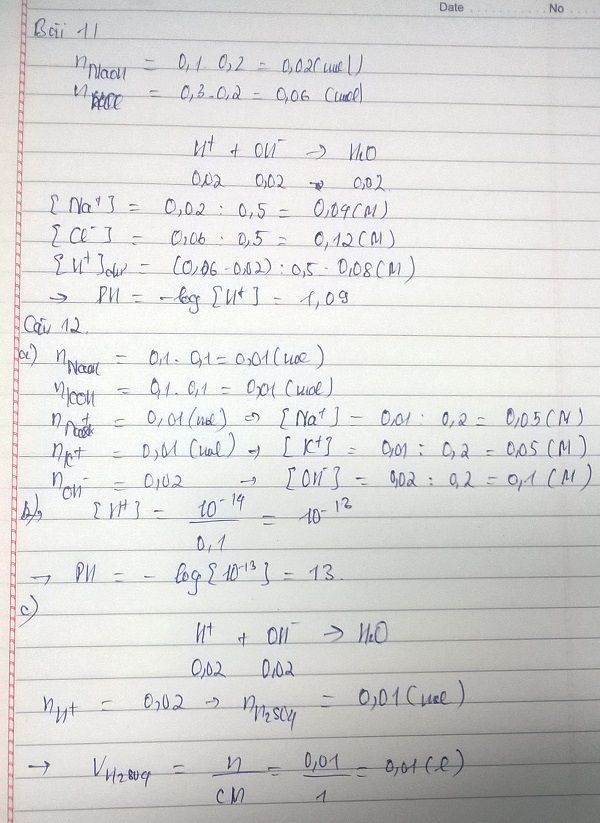 Date No
Bài 11
nNaOH = 0,1 . 0,2 = 0,02 (mol)
nHCl = 0,3 . 0,2 = 0,06 (mol)
H⁺ + OH⁻ → H₂O
0,02 0,02 → 0,02
[Na⁺] = 0,02 : 0,5 = 0,04 (M)
[Cl⁻] = 0,06 : 0,5 = 0,12 (M)
[H⁺]dư = (0,06 - 0,02) : 0,5 = 0,08 (M)
→ PH = -log [H⁺] = 1,09
Câu 12.
a) nNaOH = 0,1 . 0,1 = 0,01 (mol)
nKOH = 0,1 . 0,1 = 0,01 (mol)
nNa⁺ = 0,01 (mol) → [Na⁺] = 0,01 : 0,2 = 0,05 (M)
nK⁺ = 0,01 (mol) → [K⁺] = 0,01 : 0,2 = 0,05 (M)
nOH⁻ = 0,02 → [OH⁻] = 0,02 : 0,2 = 0,1 (M)
b) [H⁺] = 10⁻¹⁴ / 0,1 = 10⁻¹³
→ PH = - log [10⁻¹³] = 13.
c)
H⁺ + OH⁻ → H₂O
0,02 0,02
nH⁺ = 0,02 → nH₂SO₄ = 0,01 (mol)
→ VH₂SO₄ = n / CM = 0,01 / 1 = 0,01 (l)